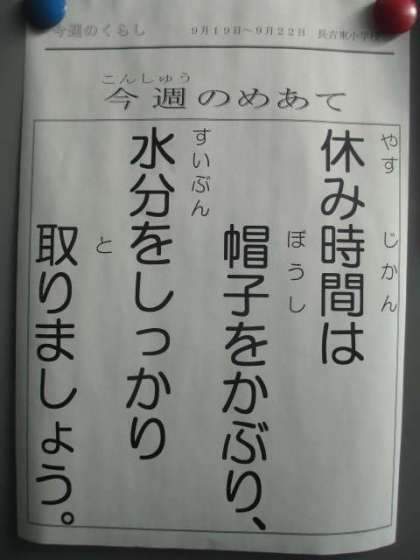 今週のくらし
9月19日～9月22日 長吉東小学校
こんしゅう
今週のめあて
やす じかん
休み時間は
ぼうし
帽子をかぶり、
すいぶん
水分をしっかり
と
取りましょう。